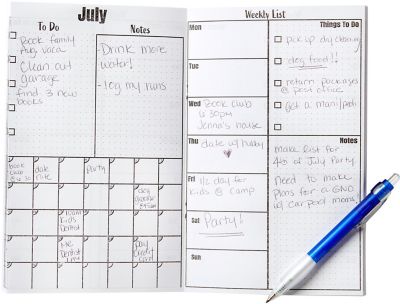 July
To Do
Book family
Aug. vaca
Clean out
garage
find 3 new
books
Notes
-Drink more
water!
-log my runs
book
club
date
nite
Party
dog
groom
Kids
Dentist
me
Dentist
pay
credit
card
Weekly List
Mon
Tue
Wed
Book club
6:30pm
Jenna's house
Thu
date w/ hubby
Fri
1/2 day for
kids @ camp
Sat
Party!
Sun
Things To Do
pick up dry cleaning
dog food!!
return packages
@ post office
get a mani/pedi
Notes
make list for
4th of July Party
need to make
plans for a GNO
w/ carpool moms